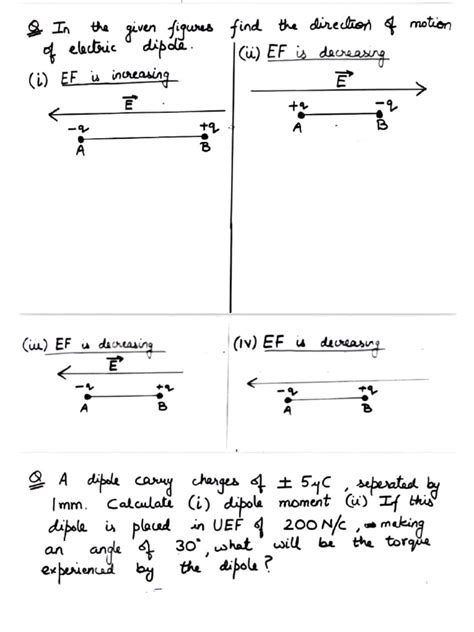 Q In the given figures find the direction of motion
of electric dipole.
(i) EF is increasing
E
-q +q
A B
(ii) EF is decreasing
E
+q -q
A B
(iii) EF is decreasing
E
-q +q
A B
(iv) EF is decreasing
-q +q
A B
Q A dipole carry charges of ± 5μC, seperated by
1mm. Calculate (i) dipole moment (ii) If this
dipole is placed in UEF of 200 N/C, making
an angle of 30°, what will be the torque
experienced by the dipole?